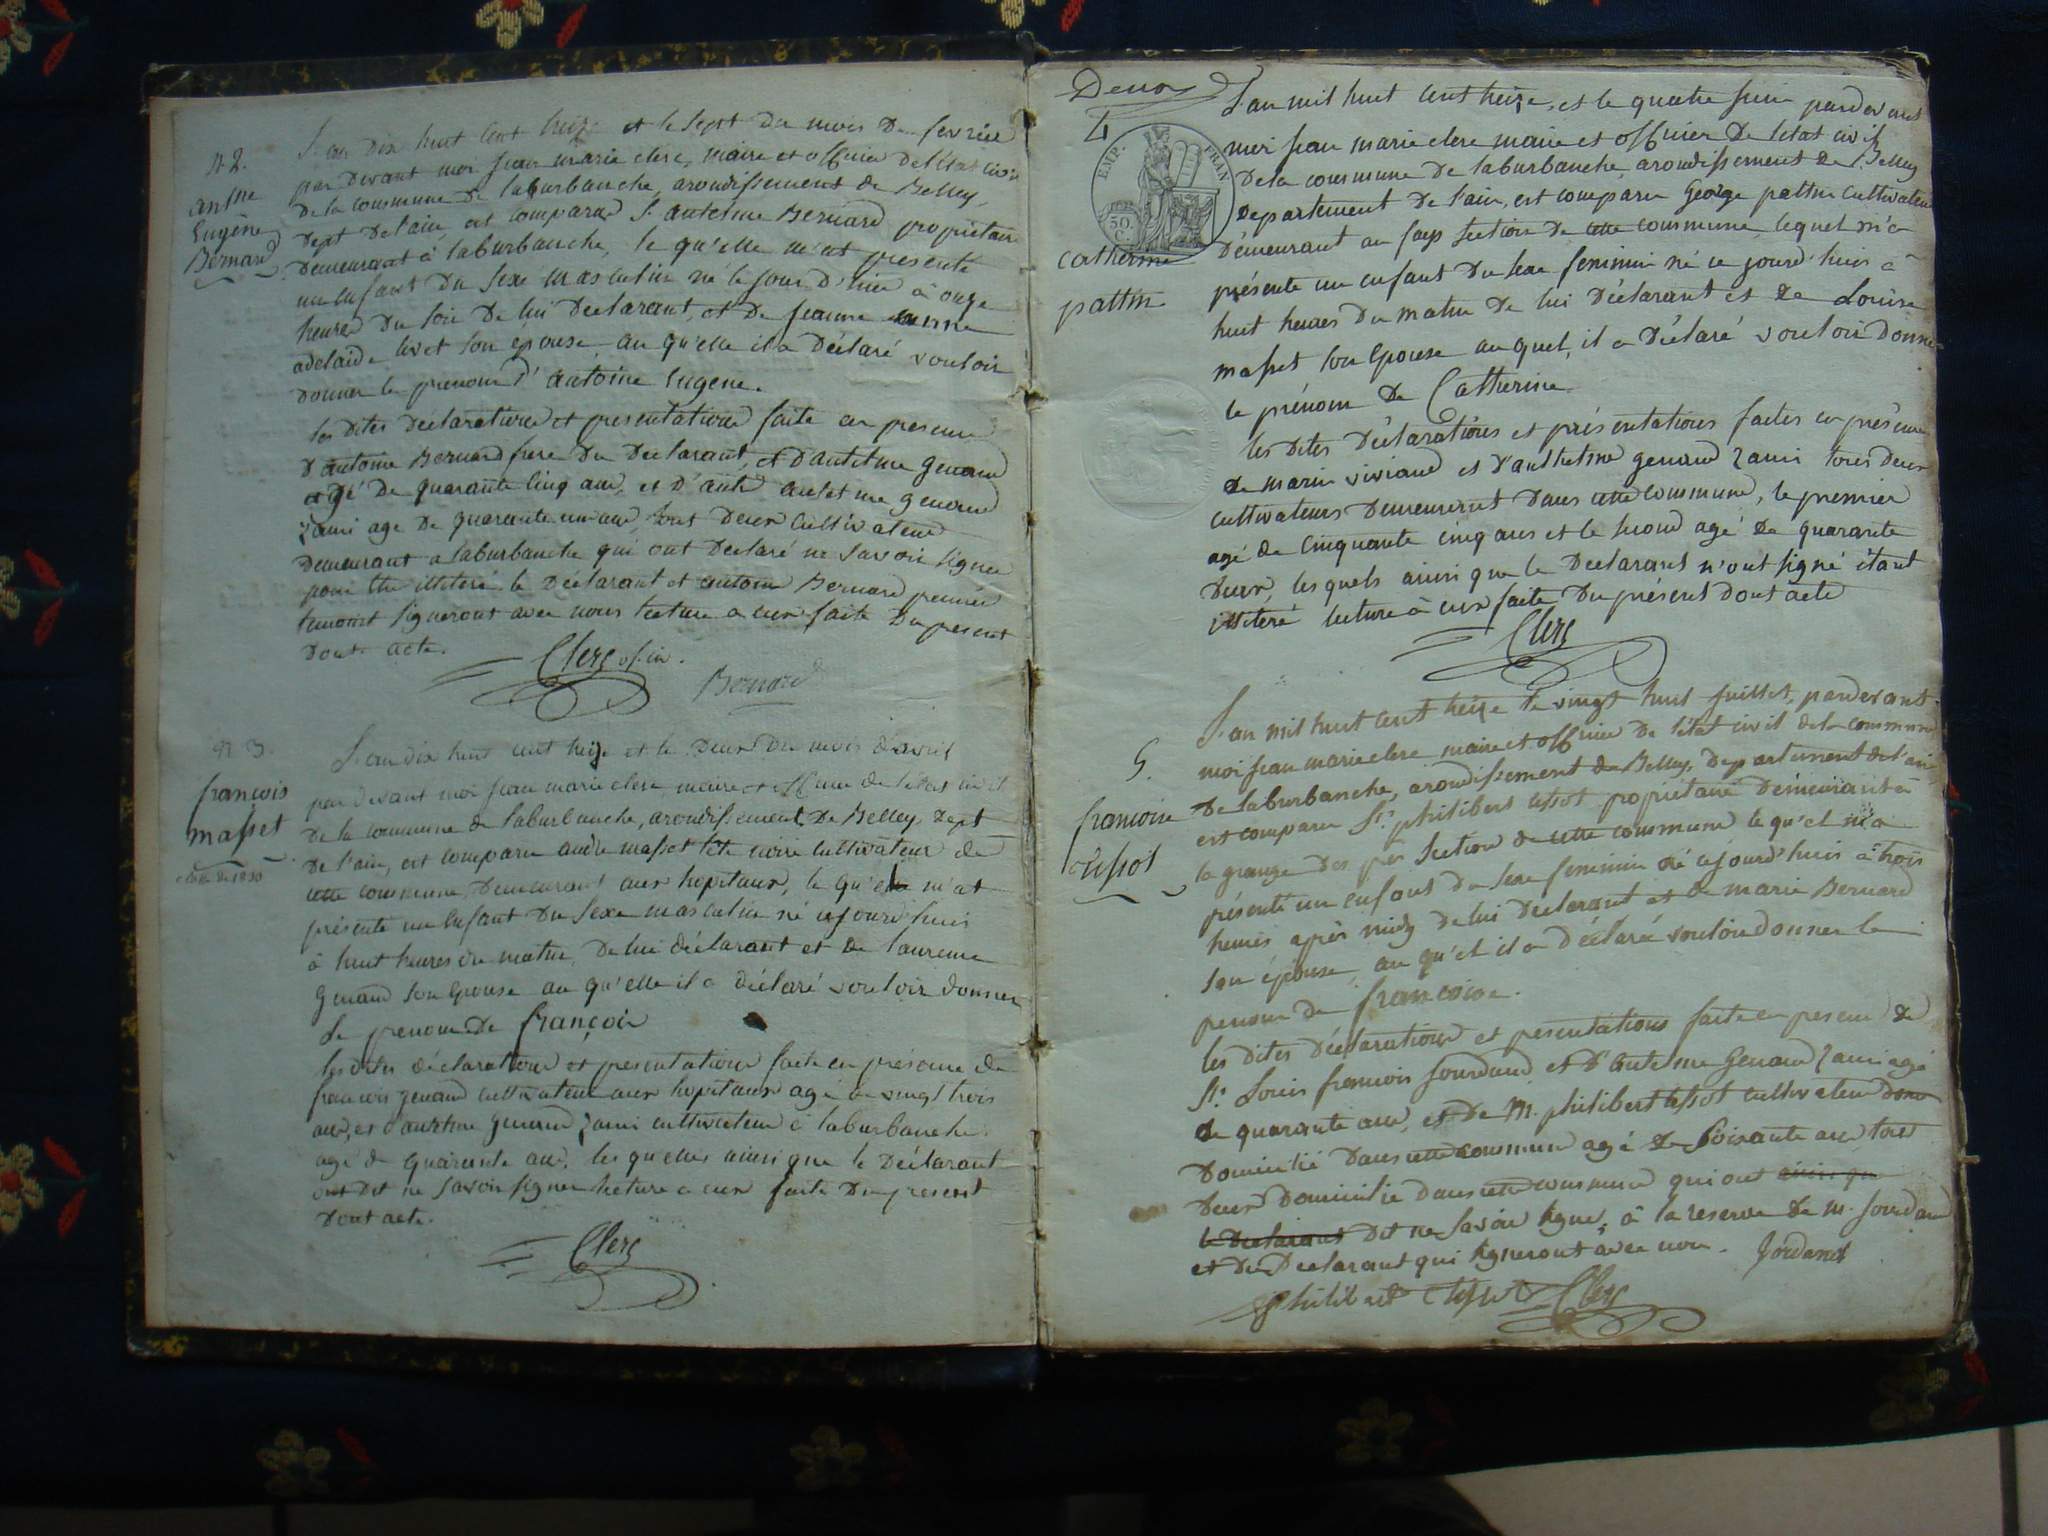 N 2.
antne
Eugène
Bernard
L'an dix huit cent treize et le sept du mois de fevrier
par devant moi jean marie clerc, maire et officier de l'etat civil
de la commune de laburbanche, arondissement de Belley,
dept de l'ain, est comparue Sr. antelme Bernard propriétaire
demeurant à laburbanche, le qu'elle m'at presenté
un enfant du sexe masculin né le jour d'hier à onze
heures du soir de lui declarant, et de jeanne
adelaide livet son épouse, au qu'elle il a déclaré vouloir
donner le prenom d'antoine Eugene.
les dites déclaration et presentation faite en presence
d'antoine Bernard frere du declarant, et d'antelme genand
agé de quarante cinq ans, et d'antelme genand
ami age de quarante un ans tout deux cultivateur
demeurant a laburbanche qui ont declaré ne savoir signer
pour etre illiteré le déclarant et antoine Bernard premier
temoint signeront avec nous lecture a eux faite du present
dont acte.
Clerc of. civ.
Bernard
N 3.
françois
masset
classe de 1830
L'an dix huit cent treize et le deux du mois d'avril
par devant moi jean marie clerc, maire et officier de l'etat civil
de la commune de laburbanche, arondissement de Belley dept
de l'ain, est comparu andré masset tete noire cultivateur de
cette commune demeurant aux hopitaux, le qu'el m'at
présenté un enfant du sexe masculin né cejourd'huis
à huit heures du matin, de lui déclarant et de laurence
Genand son épouse au qu'elle il a déclaré vouloir donner
le prenom de françois
les dites déclaration et presentation faite en présence de
françois genand cultivateur aux hopitaux agé de vingt trois
ans, et d'antelme genand ami cultivateur à laburbanche
agé de quarante ans, les quelles ainsi que le déclarant
ont dit ne savoir signer lecture a eux faite du present
dont acte.
Clerc
Denos
4
EMP. FRAN
50.
C.
catherine
pattin
L'an mil huit cent treize, et le quatre juin pardevant
moi jean marie clerc maire et officier de l'etat civil
de la commune de laburbanche arondissement de Belley
departement de l'ain, est comparu George pattin cultivateur
démeurant au fays section de cette commune, lequel m'a
présenté un enfant du sexe feminin né ce jourd'huis à
huit heures du matin de lui déclarant et de Louise
masset son épouse au quel, il a déclaré vouloir donner
le prénom de Catherine
les dites déclarations et présentations faites en présence
de marin viviand et d'anthelme genand ami tous deux
cultivateurs demeurant dans cette commune, le premier
agé de cinquante cinq ans et le second agé de quarante
deux, lesquels ainsi que le declarant n'ont signé étant
illiteré lecture à eux faite du présent dont acte
Clerc
5.
francoise
tissot
L'an mil huit cent treize le vingt huit juillet, pardevant
moi jean marie clerc maire et officier de l'état civil de la commune
de laburbanche, arondissement de Belley, departement de l'ain,
est comparu Sr. philibert tissot propriétaire démeurant à
la grange des section de cette commune le qu'el m'a
présenté un enfant du sexe feminin né cejourd'huis à trois
heures après midy de lui declarant et de marie Bernard
son épouse, au qu'el il a déclaré vouloir donner le
penom de francoise.
les dites déclaration et presentations faite en presence de
Sr. Louis francois jourdand et d'antelme Genand ami agé
de quarante ans, et de M. philibert tissot cultivateur
domicilié dans cette commune agé de soixante ans tous
deux domicilié dans cette commune qui ont ainsi que
le declarant dit ne savoir signe, à la reserve de m. jourdand
et du Declarant qui signeront avec nous. Jordand
philibert tissot Clerc